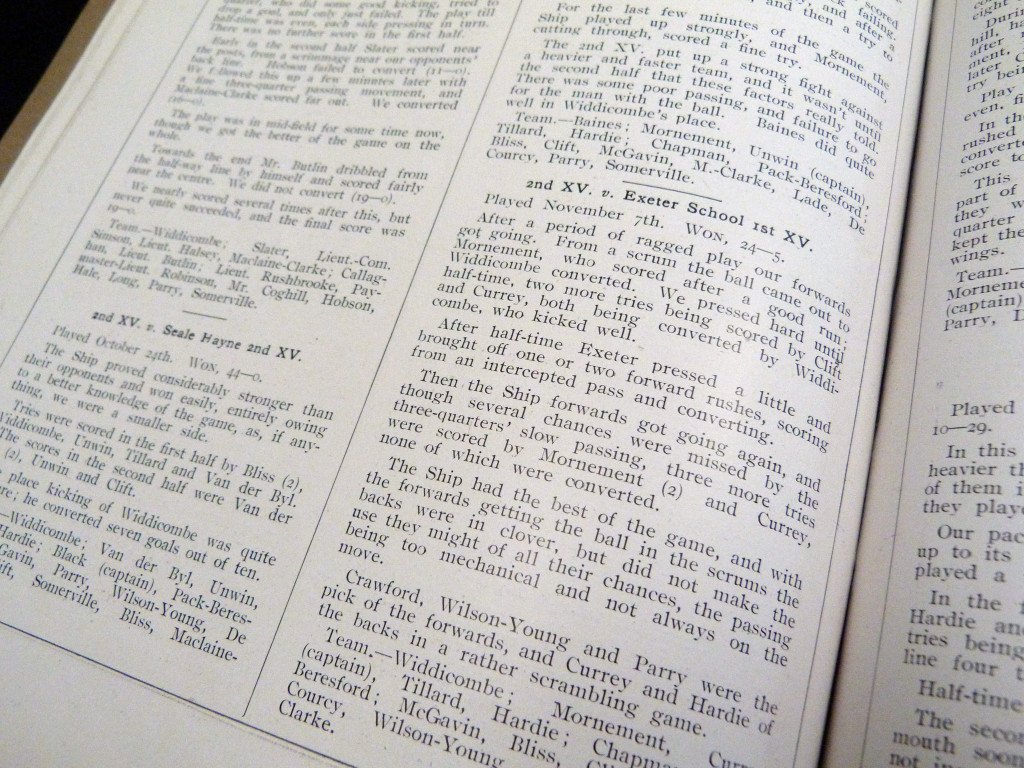 quarter, who did some good kicking, tried to
drop a goal, and only just failed. The play till
half-time was even, each side pressing in turn.
There was no further score in the first half.
Early in the second half Slater scored near
the posts, from a scrummage near our opponents'
back line. Hobson failed to convert (11—0).
We followed this up a few minutes later with
a fine three-quarter passing movement, and
Maclaine-Clarke scored far out. We converted
(16—0).
The play was in mid-field for some time now,
though we got the better of the game on the
whole.
Towards the end Mr. Butlin dribbled from
the half-way line by himself and scored fairly
near the centre. We did not convert (19—0).
We nearly scored several times after this, but
never quite succeeded, and the final score was
19—0.
Team.—Widdicombe; Slater, Lieut.-Com.
Simson, Lieut. Halsey, Maclaine-Clarke; Callag-
han, Lieut. Butlin; Lieut. Rushbrooke, Pay-
master-Lieut. Robinson, Mr. Coghill, Hobson,
Hale, Long, Parry, Somerville.
2nd XV. v. Seale Hayne 2nd XV.
Played October 24th. Won, 44—0.
The Ship proved considerably stronger than
their opponents and won easily, entirely owing
to a better knowledge of the game, as, if any-
thing, we were a smaller side.
Tries were scored in the first half by Bliss (2),
Widdicombe, Unwin, Tillard and Van der Byl.
The scores in the second half were Van der
(2), Unwin and Clift.
place kicking of Widdicombe was quite
re; he converted seven goals out of ten.
—Widdicombe; Van der Byl, Unwin,
Hardie; Black (captain), Pack-Beres-
Gavin, Parry, Wilson-Young, De
ift, Somerville, Bliss, Maclaine-
and failing,
and then after a
For the last few minutes of the game the
Ship played up strongly, and Mornement,
cutting through, scored a fine try.
The 2nd XV. put up a strong fight against
a heavier and faster team, and it wasn't until
the second half that these factors really told.
There was some poor passing, and failure to go
for the man with the ball. Baines did quite
well in Widdicombe's place.
Team.—Baines; Mornement, Unwin (captain),
Tillard, Hardie; Chapman, Pack-Beresford;
Bliss, Clift, McGavin, M.-Clarke, Lade, De
Courcy, Parry, Somerville.
2nd XV. v. Exeter School 1st XV.
Played November 7th. Won, 24—5.
After a period of ragged play our forwards
got going. From a scrum the ball came out to
Mornement, who scored after a good run;
Widdicombe converted. We pressed hard until
half-time, two more tries being scored by Clift
and Currey, both being converted by Widdi-
combe, who kicked well.
After half-time Exeter pressed a little and
brought off one or two forward rushes, scoring
from an intercepted pass and converting.
Then the Ship forwards got going again, and
though several chances were missed by the
three-quarters' slow passing, three more tries
were scored by Mornement (2) and Currey,
none of which were converted.
The Ship had the best of the game, and with
the forwards getting the ball in the scrums the
backs were in clover, but did not make the
use they might of all their chances, the passing
being too mechanical and not always on the
move.
Crawford, Wilson-Young and Parry were the
pick of the forwards, and Currey and Hardie of
the backs in a rather scrambling game.
Team.—Widdicombe; Mornement, Curr
(captain), Tillard, Hardie; Chapman
Beresford; McGavin, Bliss,
Courcy, Wilson-Young
Clarke.
eight
Durin
hill, ha
after
ment.
later C
try bein
Play
even, fi
In the
rushed
converte
score to
This
part of
they w
quarter
kept the
wings.
Team.—
Morneme
(captain)
Parry, L
Played
10—29.
In this
heavier th
of them i
they playe
Our pac
up to its
played a
In the f
Hardie and
tries being
line four t
Half-time
The secon
mouth soon
not in